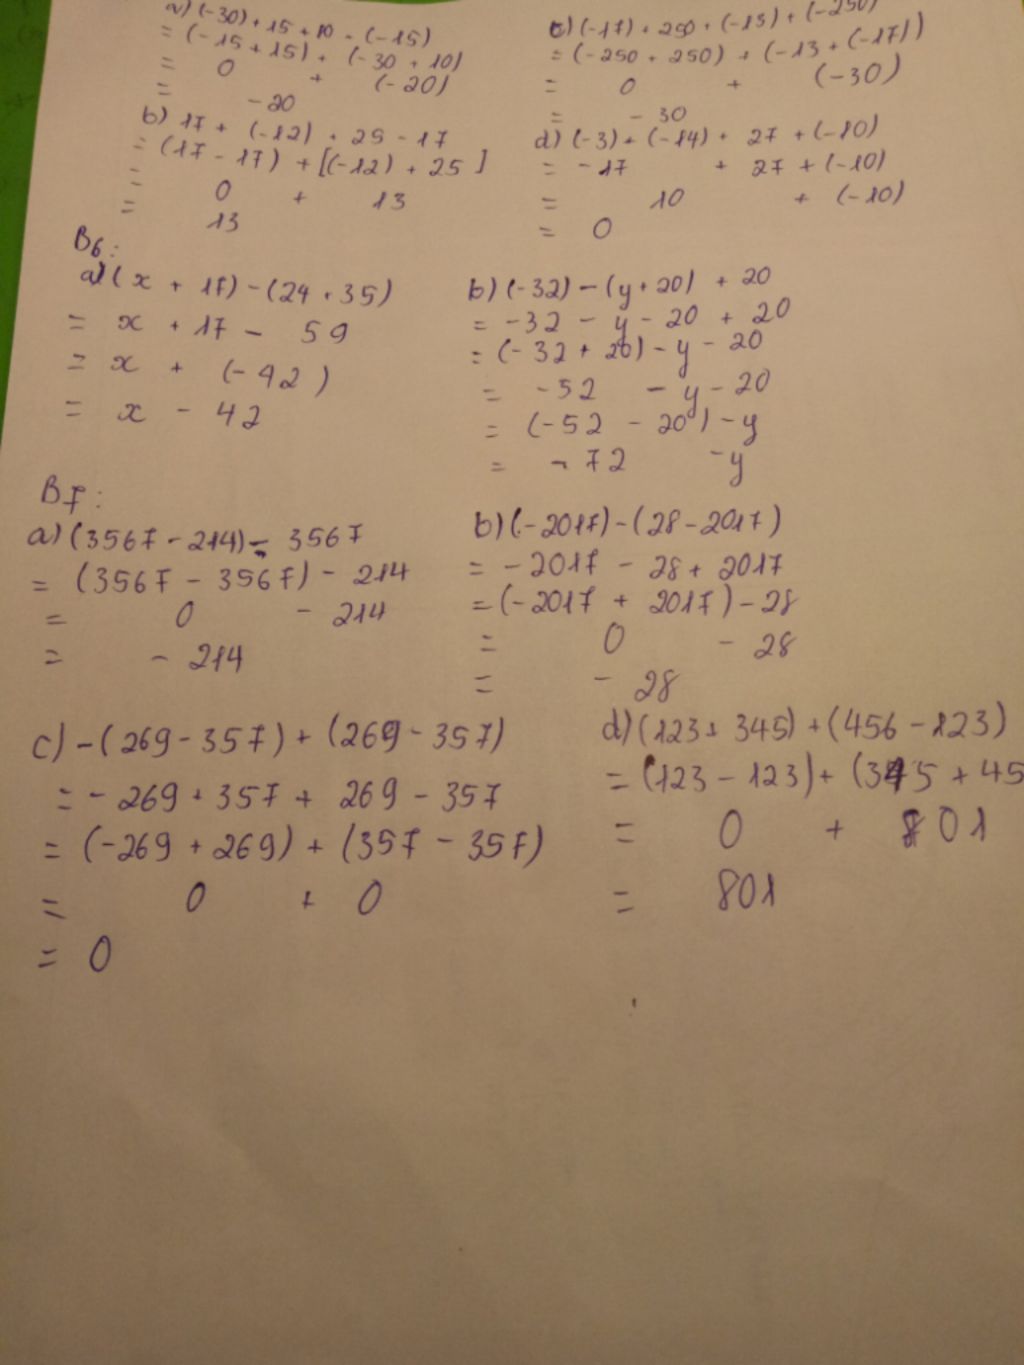 a) (-30) + 15 + 10 - (-15)
= (-15 + 15) + (-30 + 10)
= 0 + (-20)
= -20
b) 17 + (-12) + 25 - 17
= (17 - 17) + [(-12) + 25]
= 0 + 13
= 13
c) (-17) + 250 + (-13) + (-250)
= (-250 + 250) + (-13 + (-17))
= 0 + (-30)
= -30
d) (-3) + (-14) + 27 + (-10)
= -17 + 27 + (-10)
= 10 + (-10)
= 0
B6:
a) (x + 17) - (24 + 35)
= x + 17 - 59
= x + (-42)
= x - 42
b) (-32) - (y + 20) + 20
= -32 - y - 20 + 20
= (-32 + 20) - y - 20
= -52 - y - 20
= (-52 - 20) - y
= -72 - y
B7:
a) (3567 - 214) - 3567
= (3567 - 3567) - 214
= 0 - 214
= - 214
b) (-2017) - (28 - 2017)
= -2017 - 28 + 2017
= (-2017 + 2017) - 28
= 0 - 28
= - 28
c) -(269 - 357) + (269 - 357)
= - 269 + 357 + 269 - 357
= (-269 + 269) + (357 - 357)
= 0 + 0
= 0
d) (123 + 345) + (456 - 123)
= (123 - 123) + (345 + 45
= 0 + 801
= 801